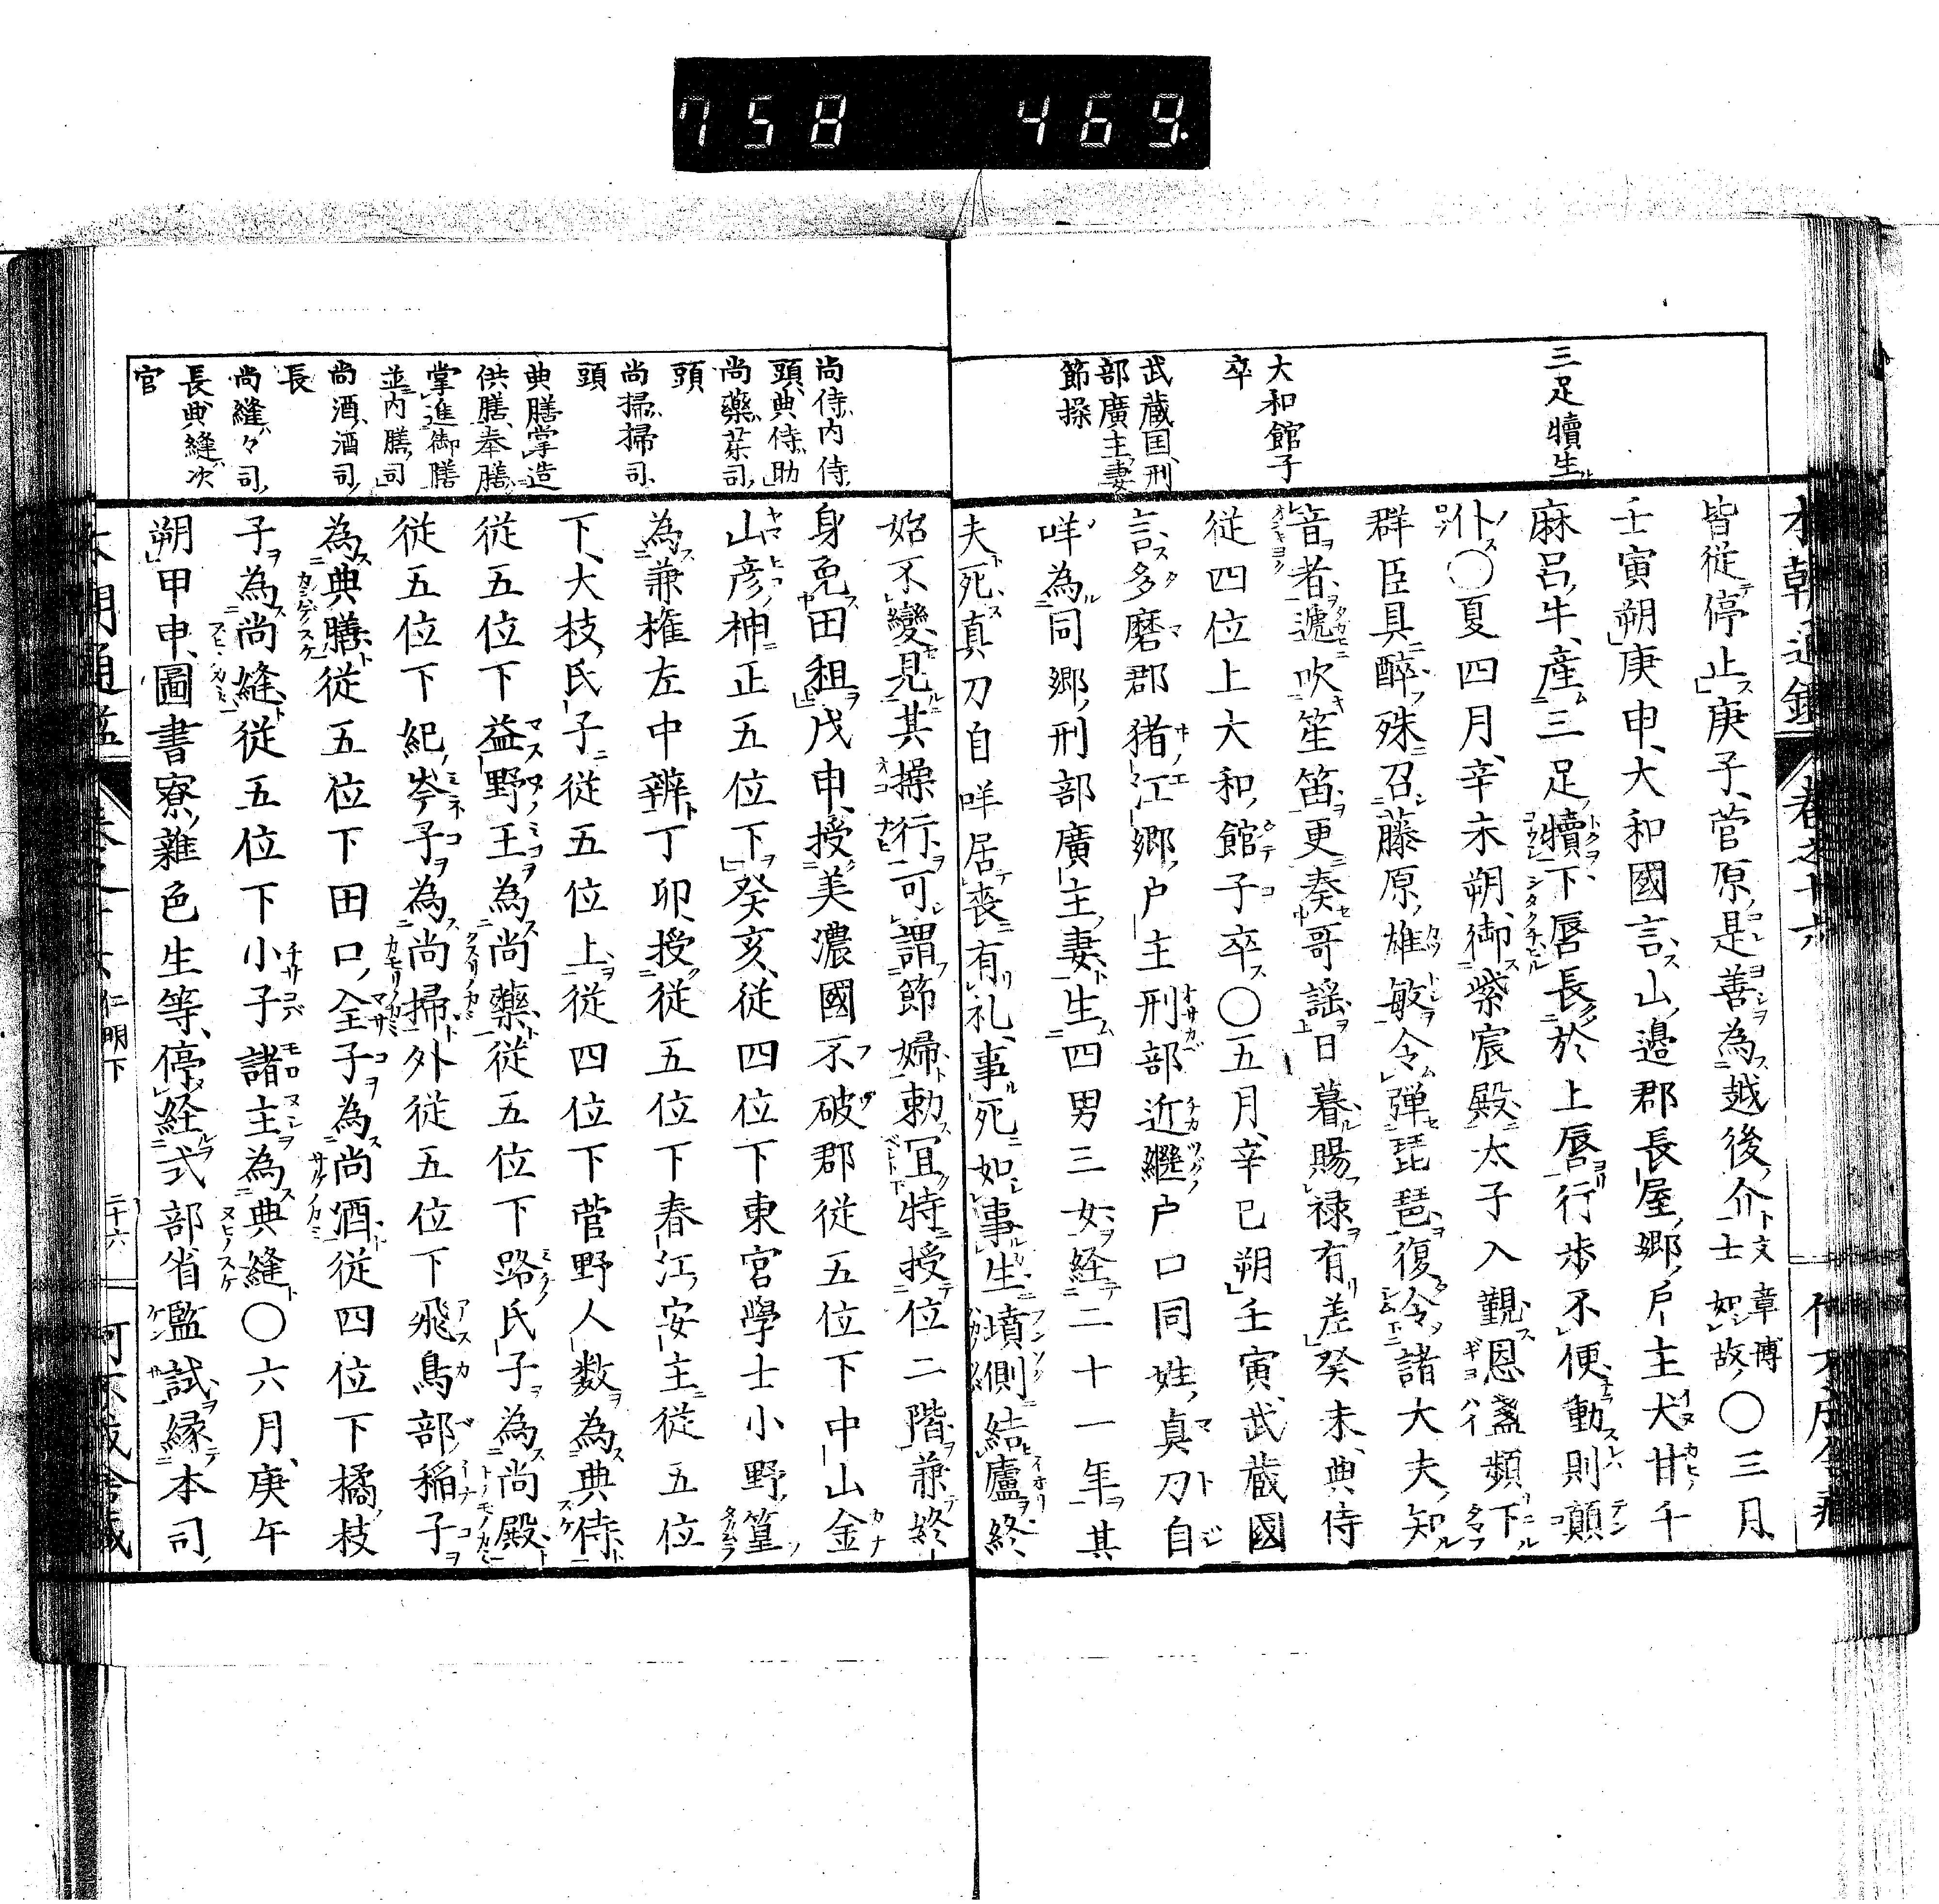 758 469
三足犢生
大和館子
卒
武蔵国刑
部廣主妻
節操
皆従停止庚子菅原是善為越後介文章博士如故〇三月
壬寅朔庚申大和國言山邉郡長屋郷戸主犬甘千
麻呂牛産三足犢下唇長於上唇行歩不便動則顛
仆〇夏四月辛未朔御紫宸殿太子入覲恩盞頻下
群臣具酔殊召藤原雄敏令弾琵琶復令諸大夫知
音者遞吹笙笛更奏哥謡日暮賜禄有差癸未典侍
従四位上大和館子卒〇五月辛巳朔壬寅武蔵國
言多磨郡猪江郷戸主刑部近継戸口同姓真刀自
咩為同郷刑部廣主妻生四男三女経二十一年其
夫死真刀自咩居喪有礼事死如事生墳側結廬終
始不變見其操行可謂節婦勅冝特授位二階兼終
身免田租戊申授美濃國不破郡従五位下中山金
山彦神正五位下癸亥従四位下東宮學士小野篁
為兼権左中辨丁卯授従五位下春江安主従五位
下大枝氏子従五位上従四位下菅野人数為典侍
従五位下益野王為尚藥従五位下路氏子為尚殿
従五位下紀岑子為尚掃外従五位下飛鳥部稲子
為典膳従五位下田口全子為尚酒従四位下橘枝
子為尚縫従五位下小子諸主為典縫〇六月庚午
朔甲申圖書寮雑色生等停経式部省濫試縁本司
尚侍内侍
頭典侍助
尚藥薬司
頭
尚掃掃司
頭
典膳掌造
供膳奉膳
掌進御膳
並内膳司
尚酒酒司
長
尚縫々司
長典縫次
官
仁明下
二十六